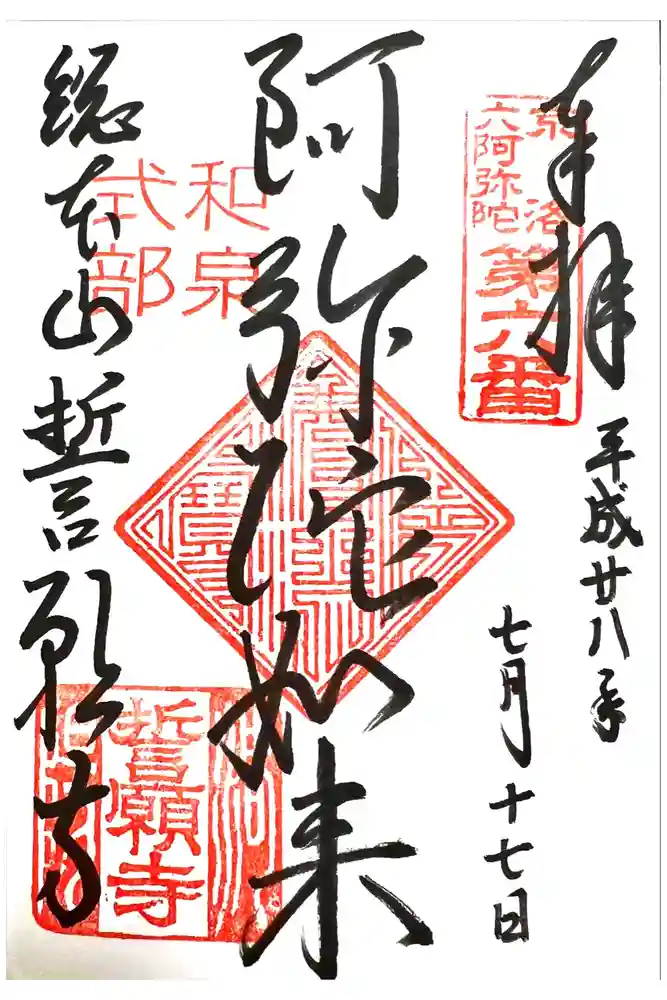 奉拝
平成廿八年
七月十七日
京洛
六阿弥陀
第六番
阿弥陀如来
和泉
式部
総本山誓願寺
誓願寺